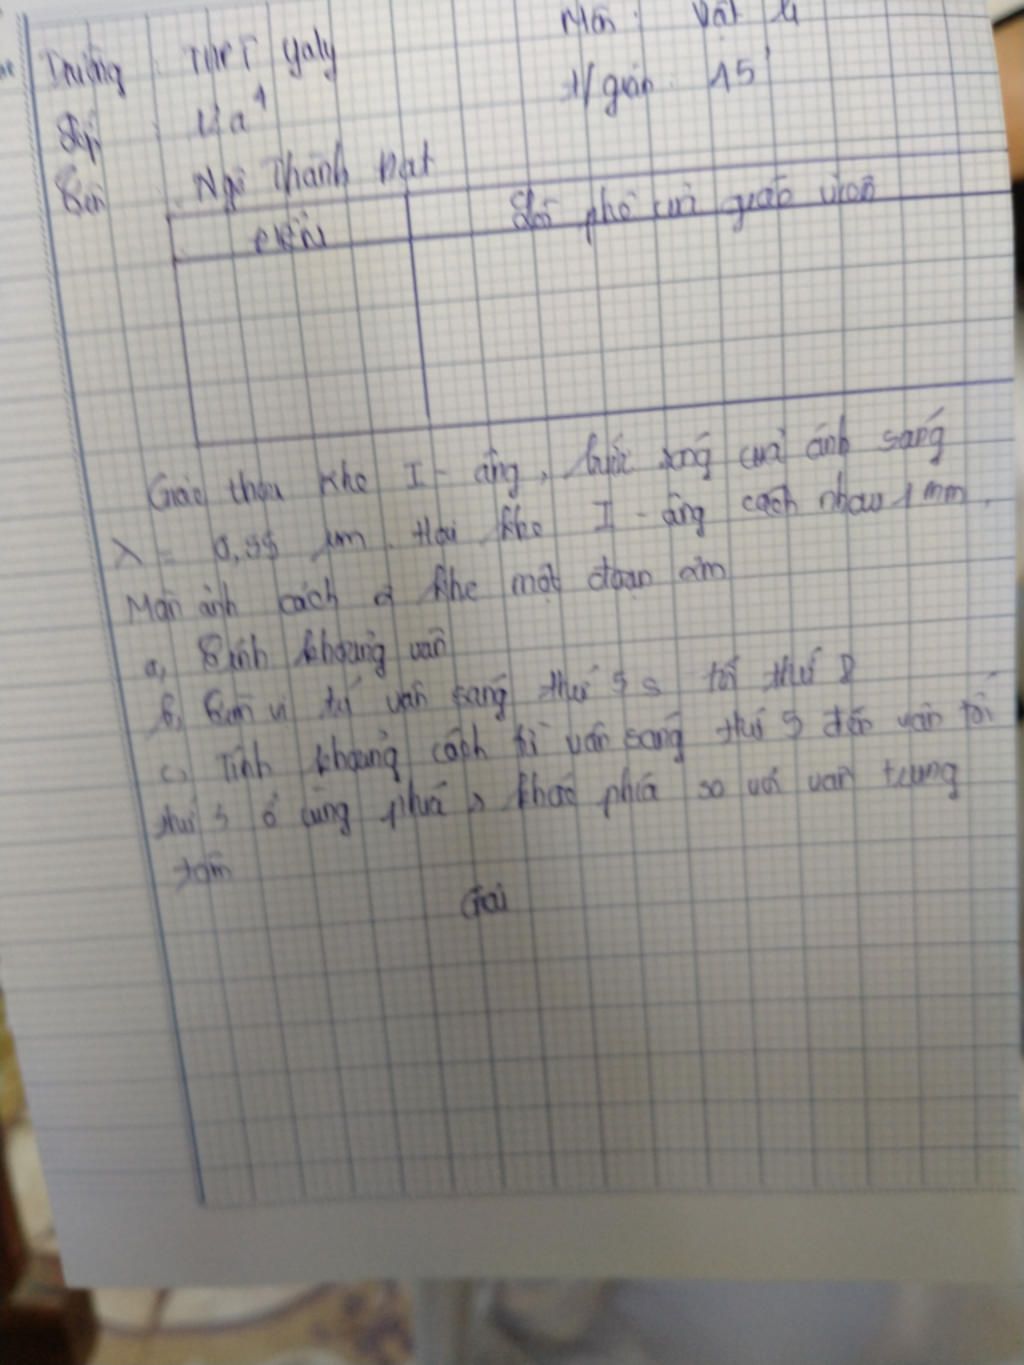 Trường : THPT yaly Môn : Vật lí
Lớp : 11a1 T/gian : 15'
Tên : Ngô Thành Đạt
Điểm Lời phê của giáo viên
Giao thoa khe I-âng, bước sóng của ánh sáng
λ = 0,55 μm. Hai khe I-âng cách nhau 1mm.
Màn ảnh cách 2 khe một đoạn
a, Tính khoảng vân
b, Tìm vị trí vân sáng thứ 5 tối thứ 8
c, Tính khoảng cách từ vân sáng thứ 5 đến vân tối
thứ ở cùng phía, khác phía so với vân trung
tâm
Giải